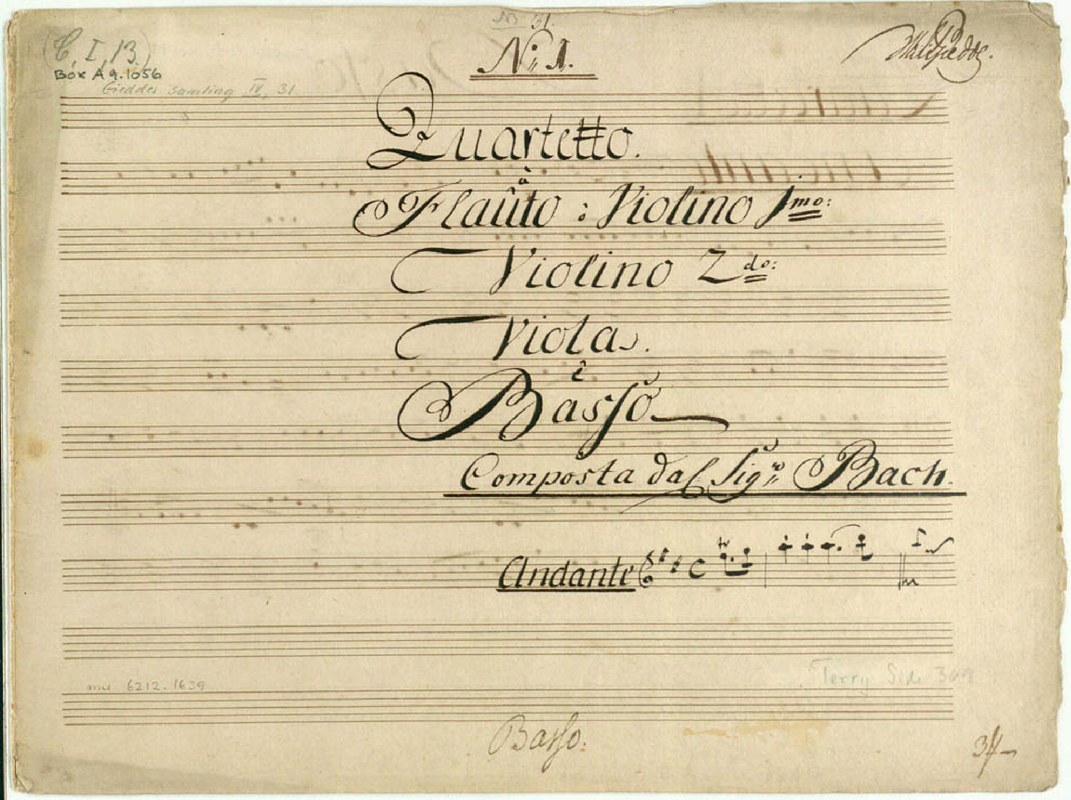 No 61.
No: 1.
C, I, 13.
Box A 9. 1056
Gieddes samling IV, 31.
WHRGiedde.
Quartetto.
à
Flauto: Violino 1mo:
Violino 2do:
Viola.
è
Basso
Composta dal Sigre: Bach.
Andante
mu 6212.1639
Terry Side 309
Basso.